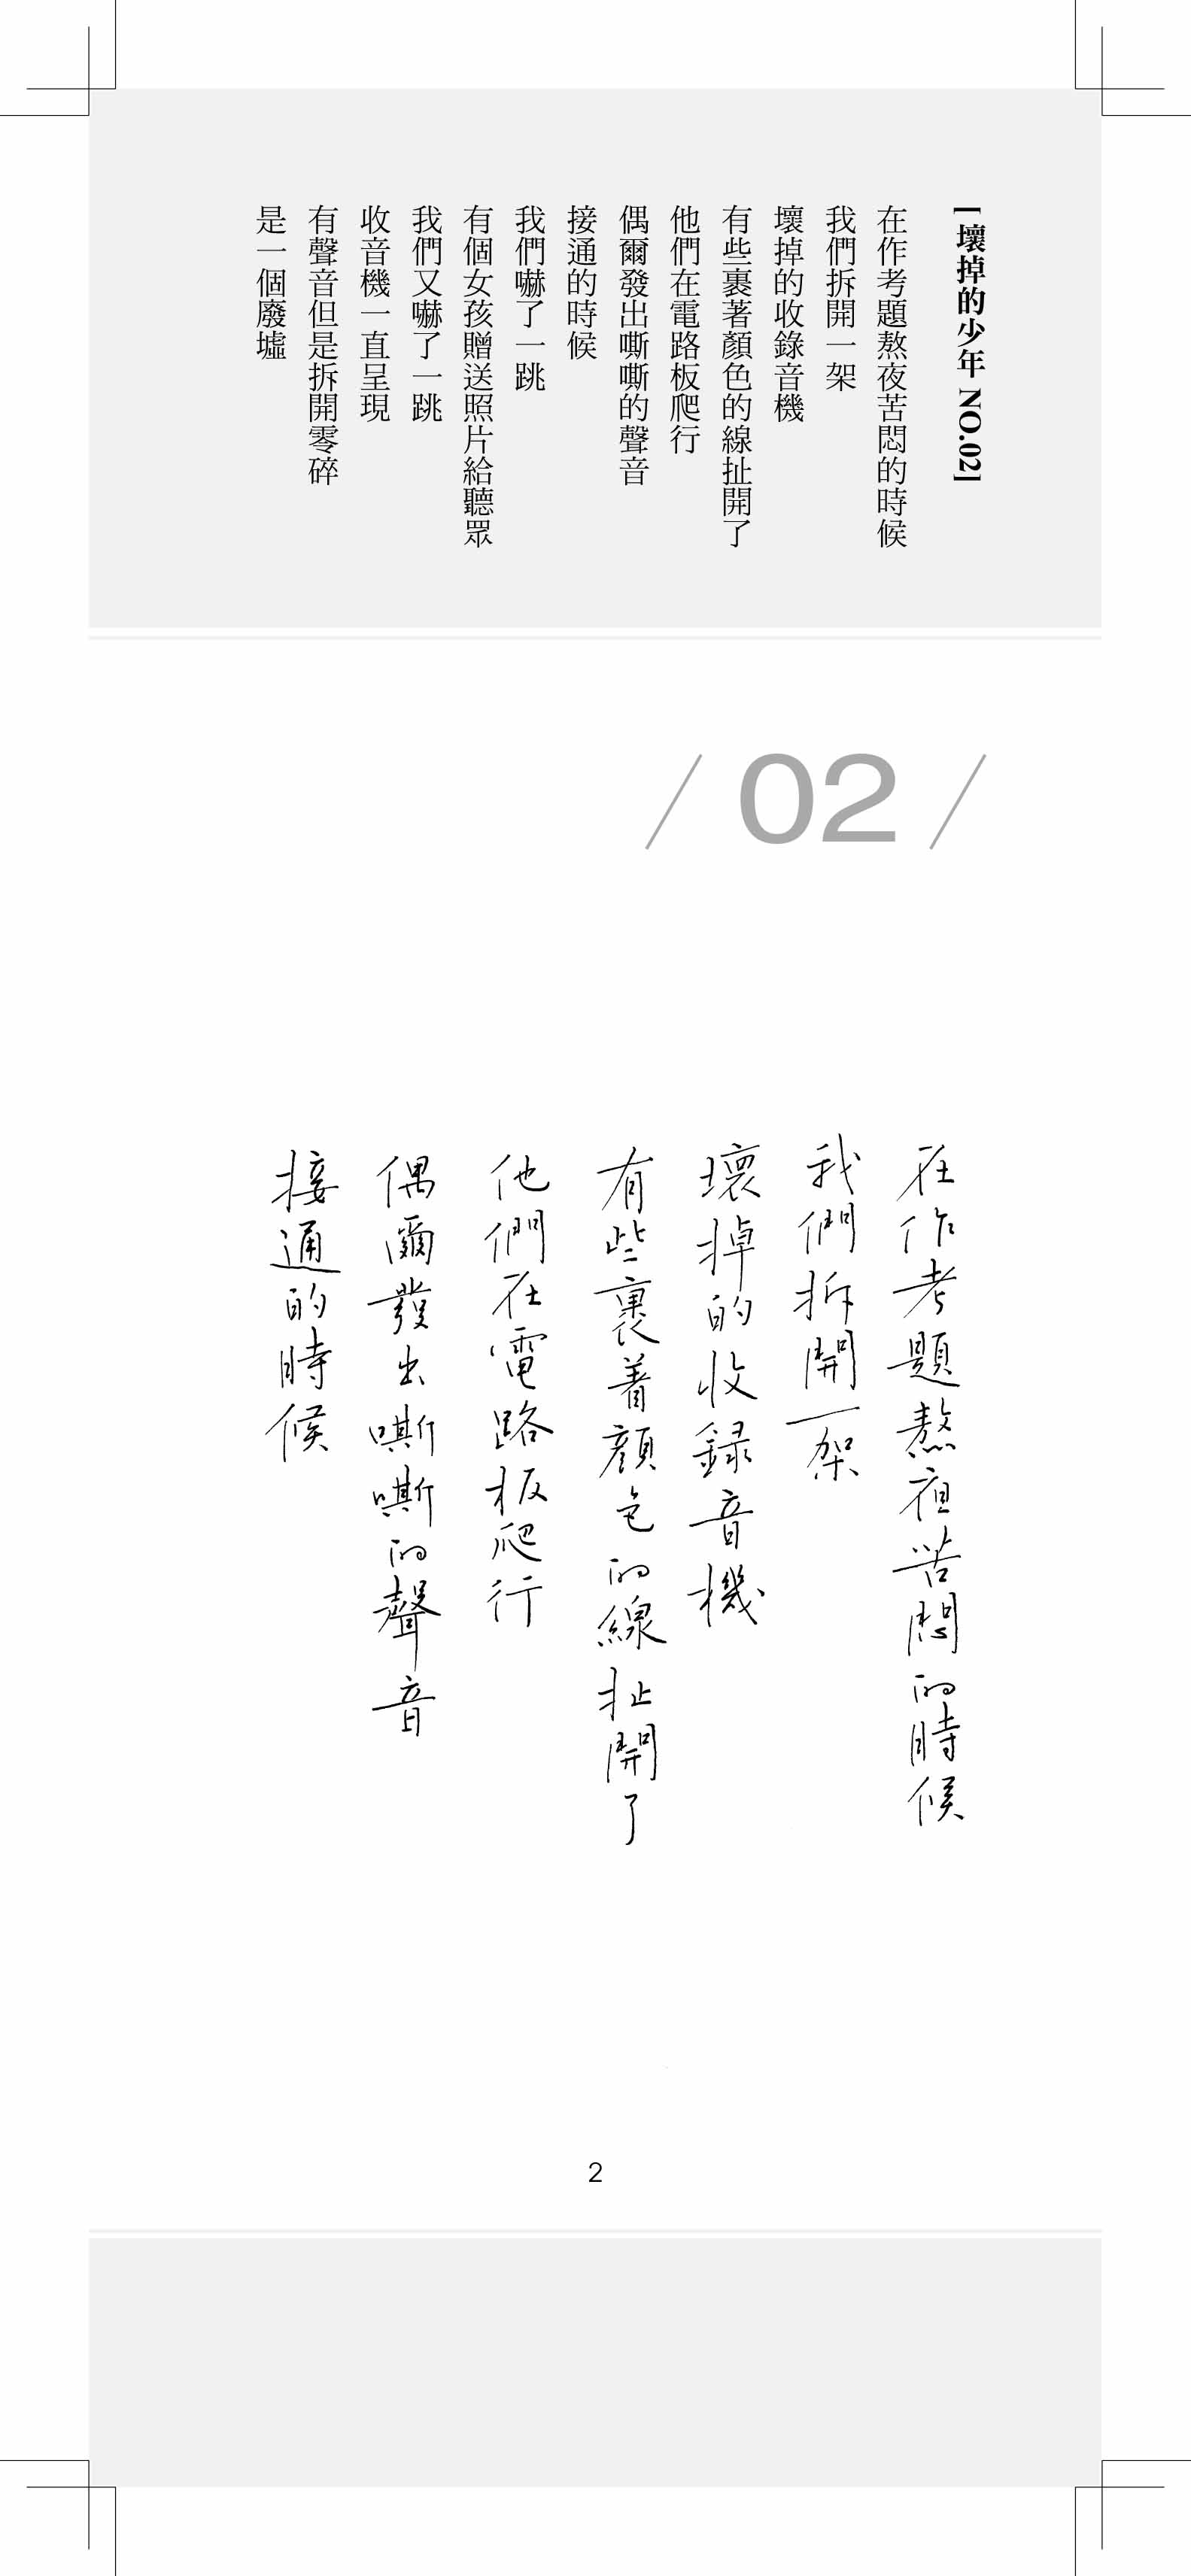 [ 壞掉的少年 NO.02]
在作考題熬夜苦悶的時候
我們拆開一架
壞掉的收錄音機
有些裹著顏色的線扯開了
他們在電路板爬行
偶爾發出嘶嘶的聲音
接通的時候
我們嚇了一跳
有個女孩贈送照片給聽眾
我們又嚇了一跳
收音機一直呈現
有聲音但是拆開零碎
是一個廢墟
/ 02 /
在作考題熬夜苦悶的時候
我們拆開一架
壞掉的收錄音機
有些裹着顏色的線扯開了
他們在電路板爬行
偶爾發出嘶嘶的聲音
接通的時候
2